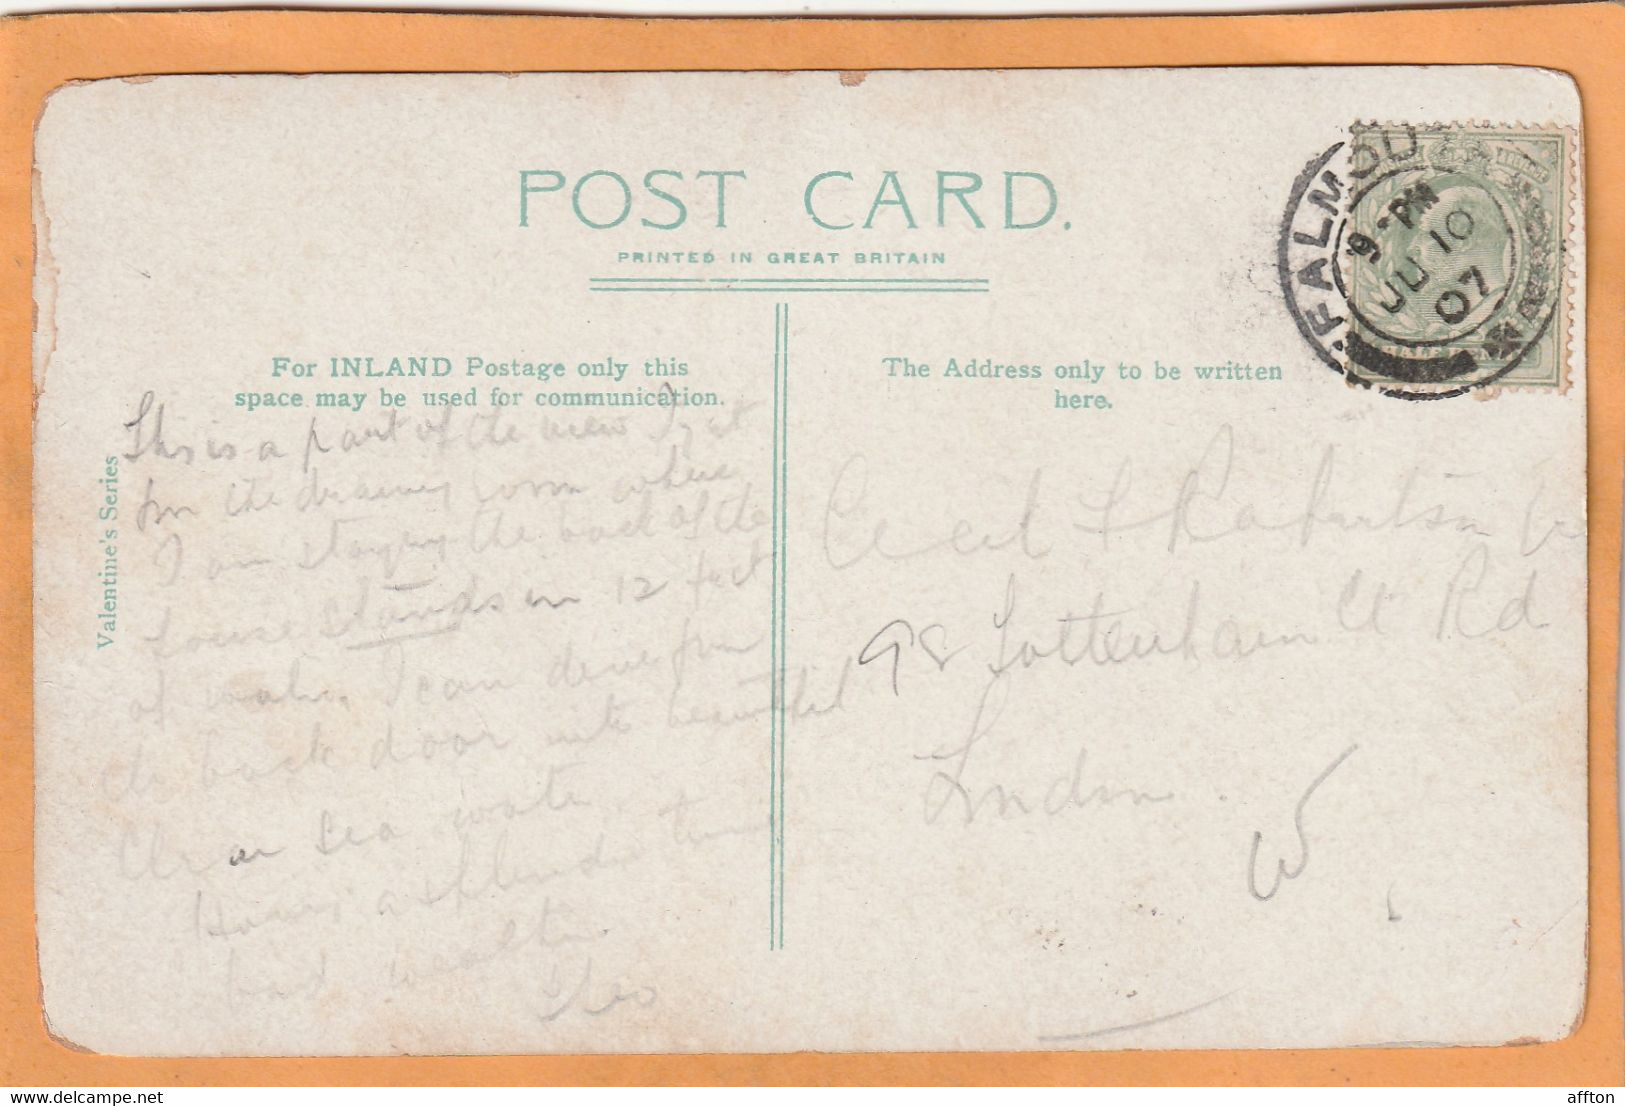 POST CARD.
PRINTED IN GREAT BRITAIN
For INLAND Postage only this
space may be used for communication.
The Address only to be written
here.
Valentine's Series
FALMOUTH
9-PM
JU 10
07
This is a part of the view I get
from the drawing room where
I am staying the back of the
house stands in 12 feet
of water. I can dive from
the back door into beautiful
clear sea water.
Having a splendid time
bad weather
Cecil F Robertson
98 Tottenham Ct Rd
London
W
affton